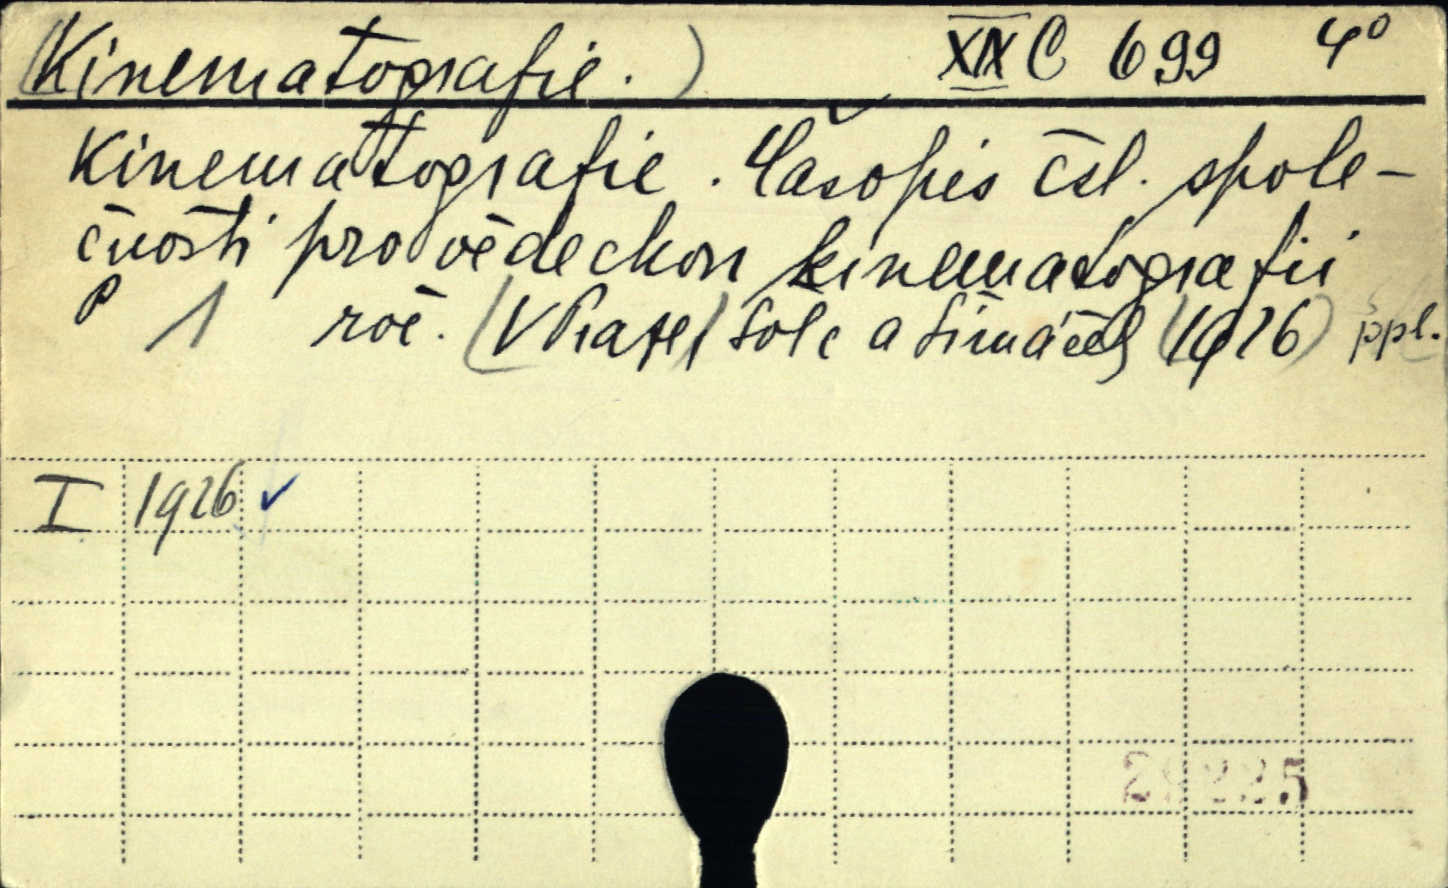 (Kinematografie.) XIX C 699 4°
Kinematografie. Časopis čsl. spole-
čnosti pro vědeckou kinematografii
1 roč. (V Praze) Šolc a Šimáček (1926) ppl.
I 1926 ✓